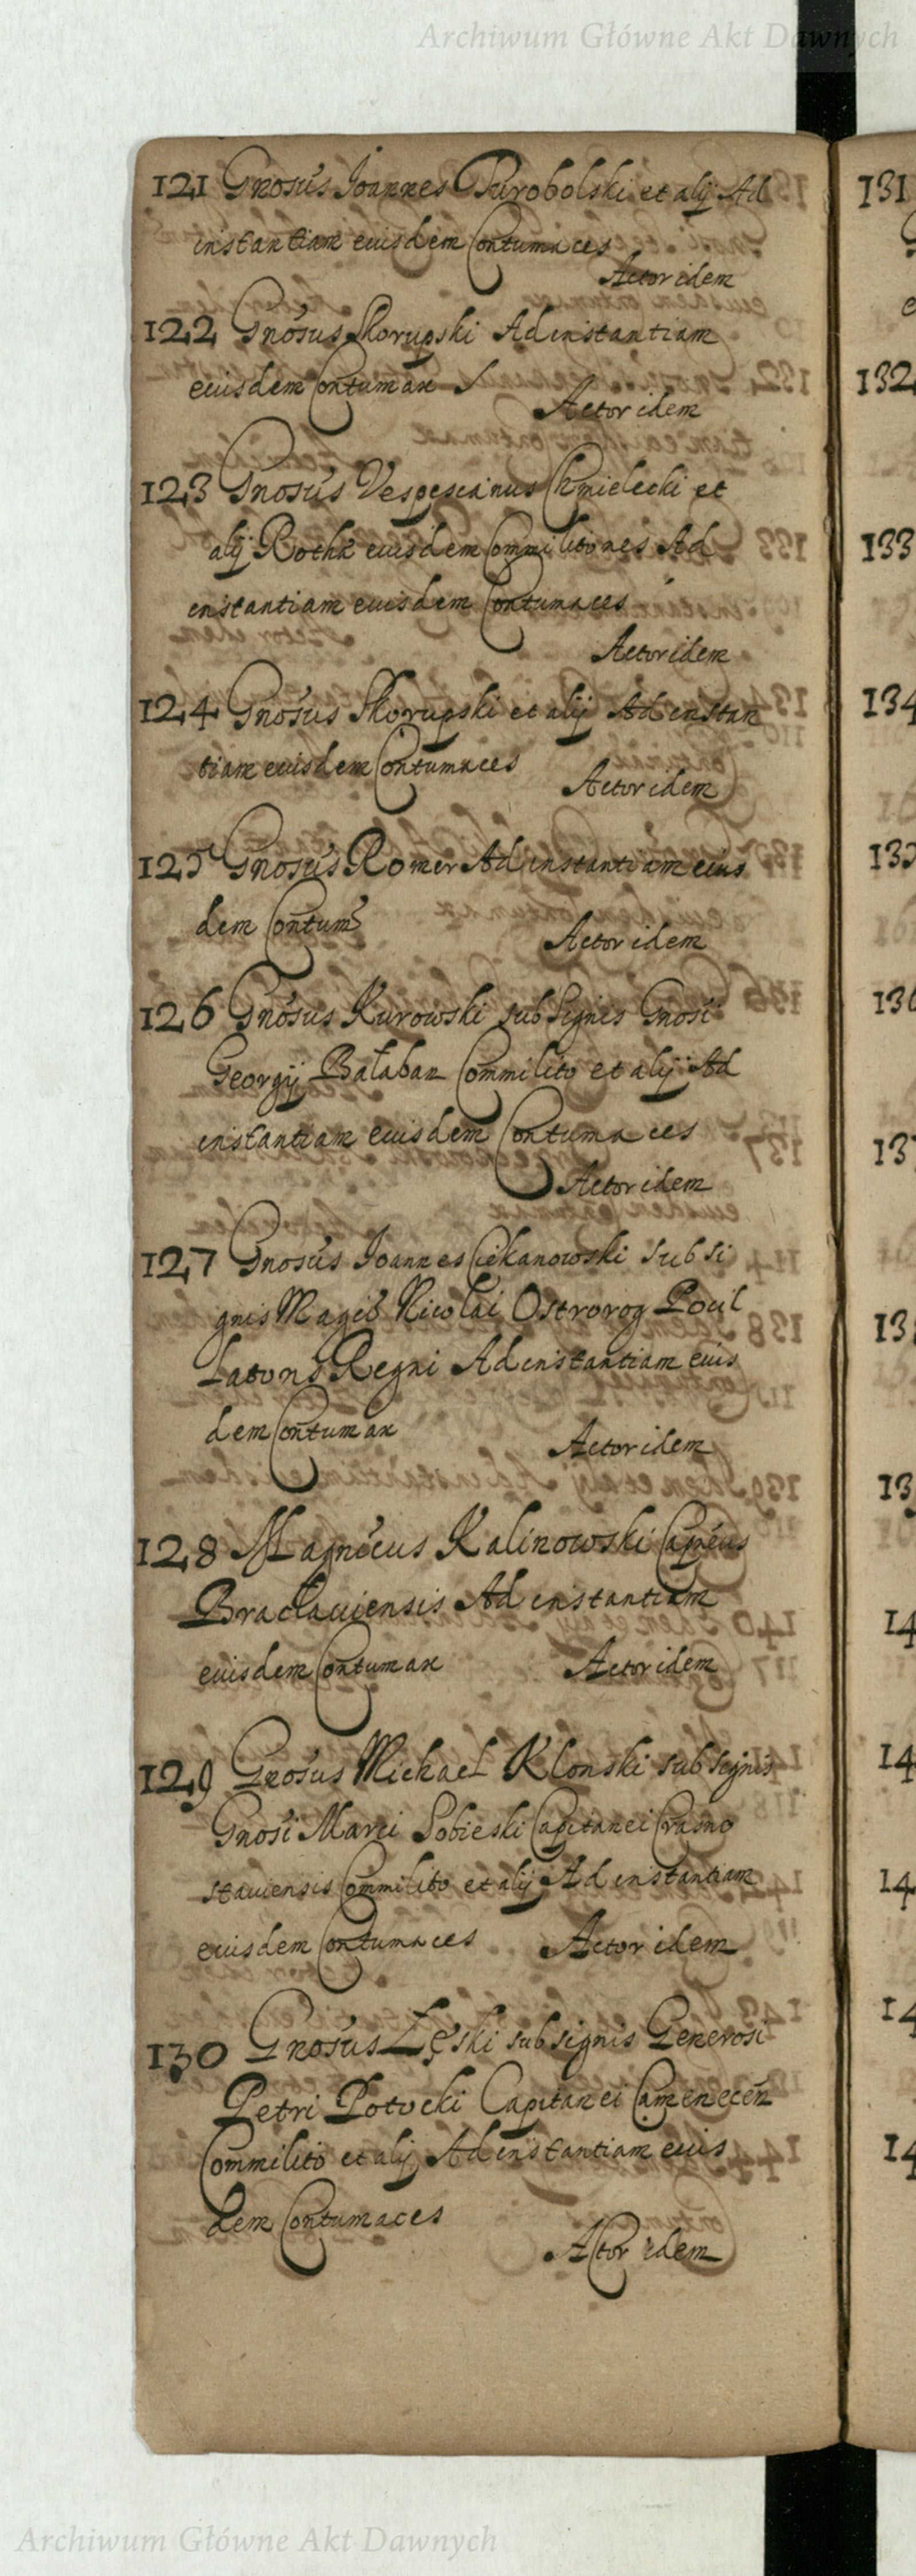 Archiwum Główne Akt Dawnych
121 Gnosus Joannes Purobolski et alij Ad
instantiam eiusdem Contumaces
Actor idem
122 Gnosus Skorupski Ad instantiam
eiusdem Contumax
Actor idem
123 Gnosus Vespesianus Chmielecki et
alij Rothæ eiusdem Commilitones Ad
instantiam eiusdem Contumaces
Actor idem
124 Gnosus Skorupski et alij Ad instan
tiam eiusdem Contumaces
Actor idem
125 Gnosus Romer Ad instantiam eius
dem Contum
Actor idem
126 Gnosus Kurowski sub Signis Gnosi
Georgij Bałaban Commilito et alij Ad
instantiam eiusdem Contumaces
Actor idem
127 Gnosus Joannes Ciekanowski sub si
gnis Magci Nicolai Ostrorog Pocil
latoris Regni Ad instantiam eius
dem Contumax
Actor idem
128 Magnicus Kalinowski Capneus
Braclauiensis Ad instantiam
eiusdem Contumax Actor idem
129 Gnosus Michael Klonski sub signis
Gnosi Marci Sobieski Capitanei Crasno
stauiensis Commilito et alij Ad instantiam
eiusdem Contumaces Actor idem
130 Gnosus Łęski sub signis Generosi
Petri Potocki Capitanei Camenecen
Commilito et alij Ad instantiam eius
dem Contumaces
Actor idem
131
132
133
134
Archiwum Główne Akt Dawnych